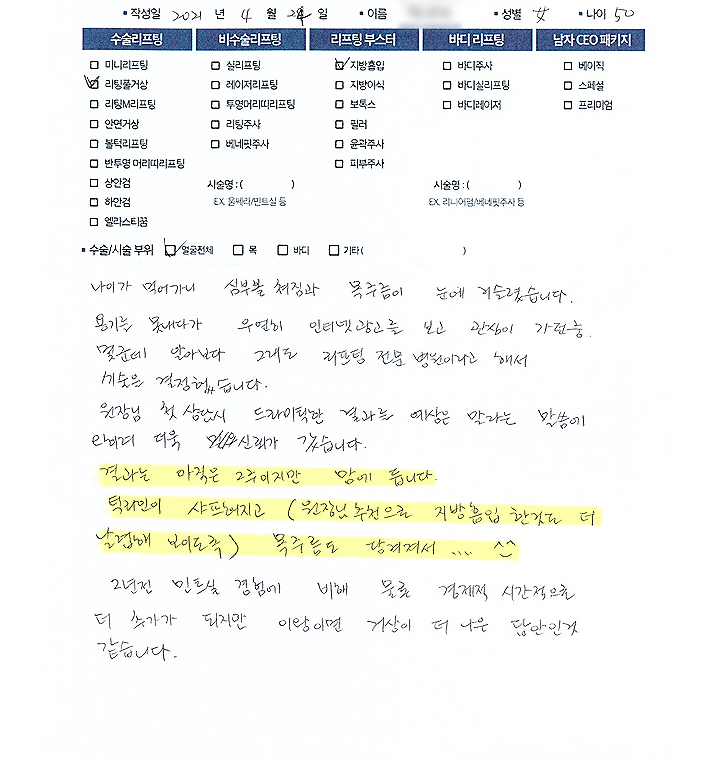 ▪ 작성일 2021 년 4 월 24 일 ▪ 이름 ▪ 성별 女 ▪ 나이 50
수술리프팅 비수술리프팅 리프팅 부스터 바디 리프팅 남자 CEO 패키지
미니리프팅 실리프팅 지방흡입 바디주사 베이직
리팅풀거상 레이저리프팅 지방이식 바디실리프팅 스페셜
리팅M리프팅 투영머리띠리프팅 보톡스 바디레이저 프리미엄
안면거상 리팅주사 필러
볼턱리프팅 베네핏주사 윤곽주사
반투명 머리띠리프팅 피부주사
상안검 시술명 : ( ) 시술명 : ( )
하안검 EX. 울쎄라/민트실 등 EX. 리니어펌/베네핏주사 등
엘라스티꿈
▪ 수술/시술 부위 얼굴전체 목 바디 기타 ( )
나이가 먹어가니 심부볼 쳐짐과 목주름이 눈에 거슬렸습니다.
용기를 못내다가 우연히 인터넷광고를 보고 관심이 가던중
몇군데 알아보다 그래도 리프팅 전문 병원이라고 해서
시술은 결정했습니다.
원장님 첫 상담시 드라이틱한 결과는 예상은 말라는 말씀에
오히려 더욱 신뢰가 갔습니다.
결과는 아직은 2주이지만 맘에 듭니다.
턱라인이 샤프해지고 (원장님 추천으로 지방흡입 한것도 더
날렵해 보이도록) 목주름도 당겨져서 .... ^^
2년전 민트실 경험에 비해 물론 경제적 시간적으로
더 추가가 되지만 이왕이면 거상이 더 나은 답안인것
같습니다.